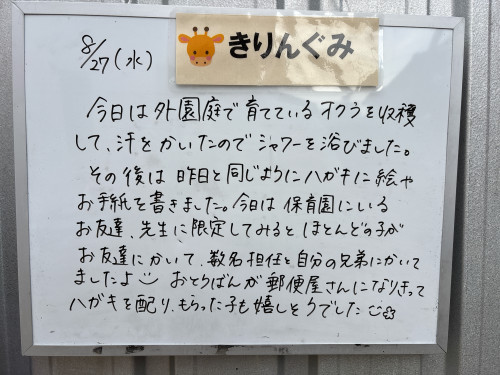 8/27(水)
きりんぐみ
今日は外園庭で育てているオクラを収穫
して、汗をかいたのでシャワーを浴びました。
その後は昨日と同じようにハガキに絵や
お手紙を書きました。今日は保育園にいる
お友達、先生に限定してみるとほとんどの子が
お友達にかいて、数名担任と自分の兄弟にかいて
ましたよ
おとうばんが郵便屋さんになりきって
ハガキを配り、もらった子も嬉しそうでした